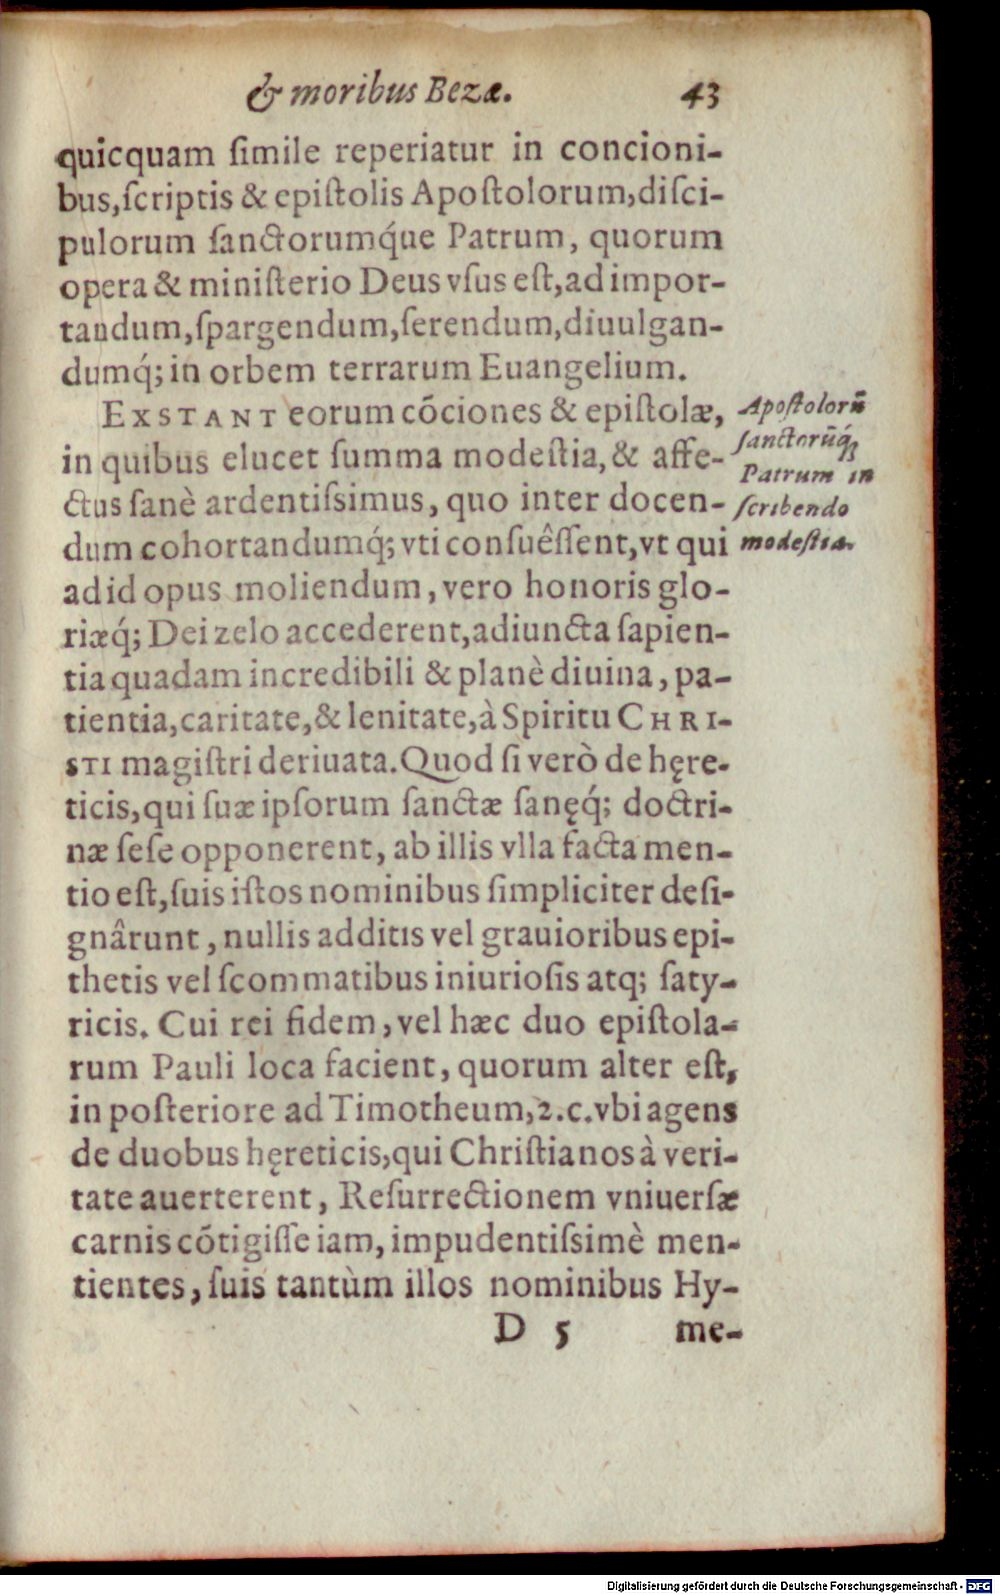 & moribus Bezæ. 43
quicquam ſimile reperiatur in concioni-
bus,ſcriptis & epiſtolis Apoſtolorum,diſci-
pulorum ſanctorumq́ue Patrum, quorum
opera & miniſterio Deus vſus eſt,ad impor-
tandum,ſpargendum,ſerendum,diuulgan-
dumq́;in orbem terrarum Euangelium.
EXSTANT eorum cōciones & epiſtolæ,
in quibus elucet ſumma modeſtia,& affe-
ctus ſanè ardentiſsimus, quo inter docen-
dum cohortandumq́; vti conſuêſſent,vt qui
ad id opus moliendum, vero honoris glo-
riæq́; Dei zelo accederent,adiuncta ſapien-
tia quadam incredibili & planè diuina, pa-
tientia,caritate,& lenitate,à Spiritu CHRI-
STI magiſtri deriuata.Quod ſi verò de hęre-
ticis,qui ſuæ ipſorum ſanctæ ſanęq́; doctri-
næ ſeſe opponerent, ab illis vlla facta men-
tio eſt,ſuis iſtos nominibus ſimpliciter deſi-
gnârunt, nullis additis vel grauioribus epi-
thetis vel ſcommatibus iniurioſis atq; ſaty-
ricis. Cui rei fidem, vel hæc duo epiſtola-
rum Pauli loca facient, quorum alter eſt,
in poſteriore ad Timotheum,2.c.vbi agens
de duobus hęreticis,qui Chriſtianos à veri-
tate auerterent, Reſurrectionem vniuerſæ
carnis cōtigiſſe iam, impudentiſsimè men-
tientes, ſuis tantùm illos nominibus Hy-
D 5 me-
Apoſtolorū
ſanctorūq́;
Patrum in
ſcribendo
modeſtia.
Digitalisierung gefördert durch die Deutsche Forschungsgemeinschaft - DFG